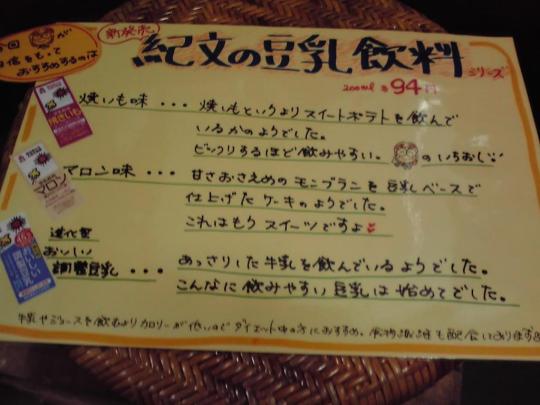 新発売
紀文の豆乳飲料シリーズ
200ml 各94円
自信をもって
おすすめするのは
焼いも味・・・焼いもというよりスイートポテトを飲んで
いるかのようでした。
ビックリするほど飲みやすい。 のいちおし
マロン味・・・甘さおさえめのモンブランを豆乳ベースで
仕上げたケーキのようでした。
これはもうスイーツですよ
進化型
おいしい
調整豆乳・・・あっさりした牛乳を飲んでいるようでした。
こんなに飲みやすい豆乳は始めてでした。
牛乳やジュースを飲むよりカロリーが低いのでダイエット中の方におすすめ。食物繊維も配合してあります